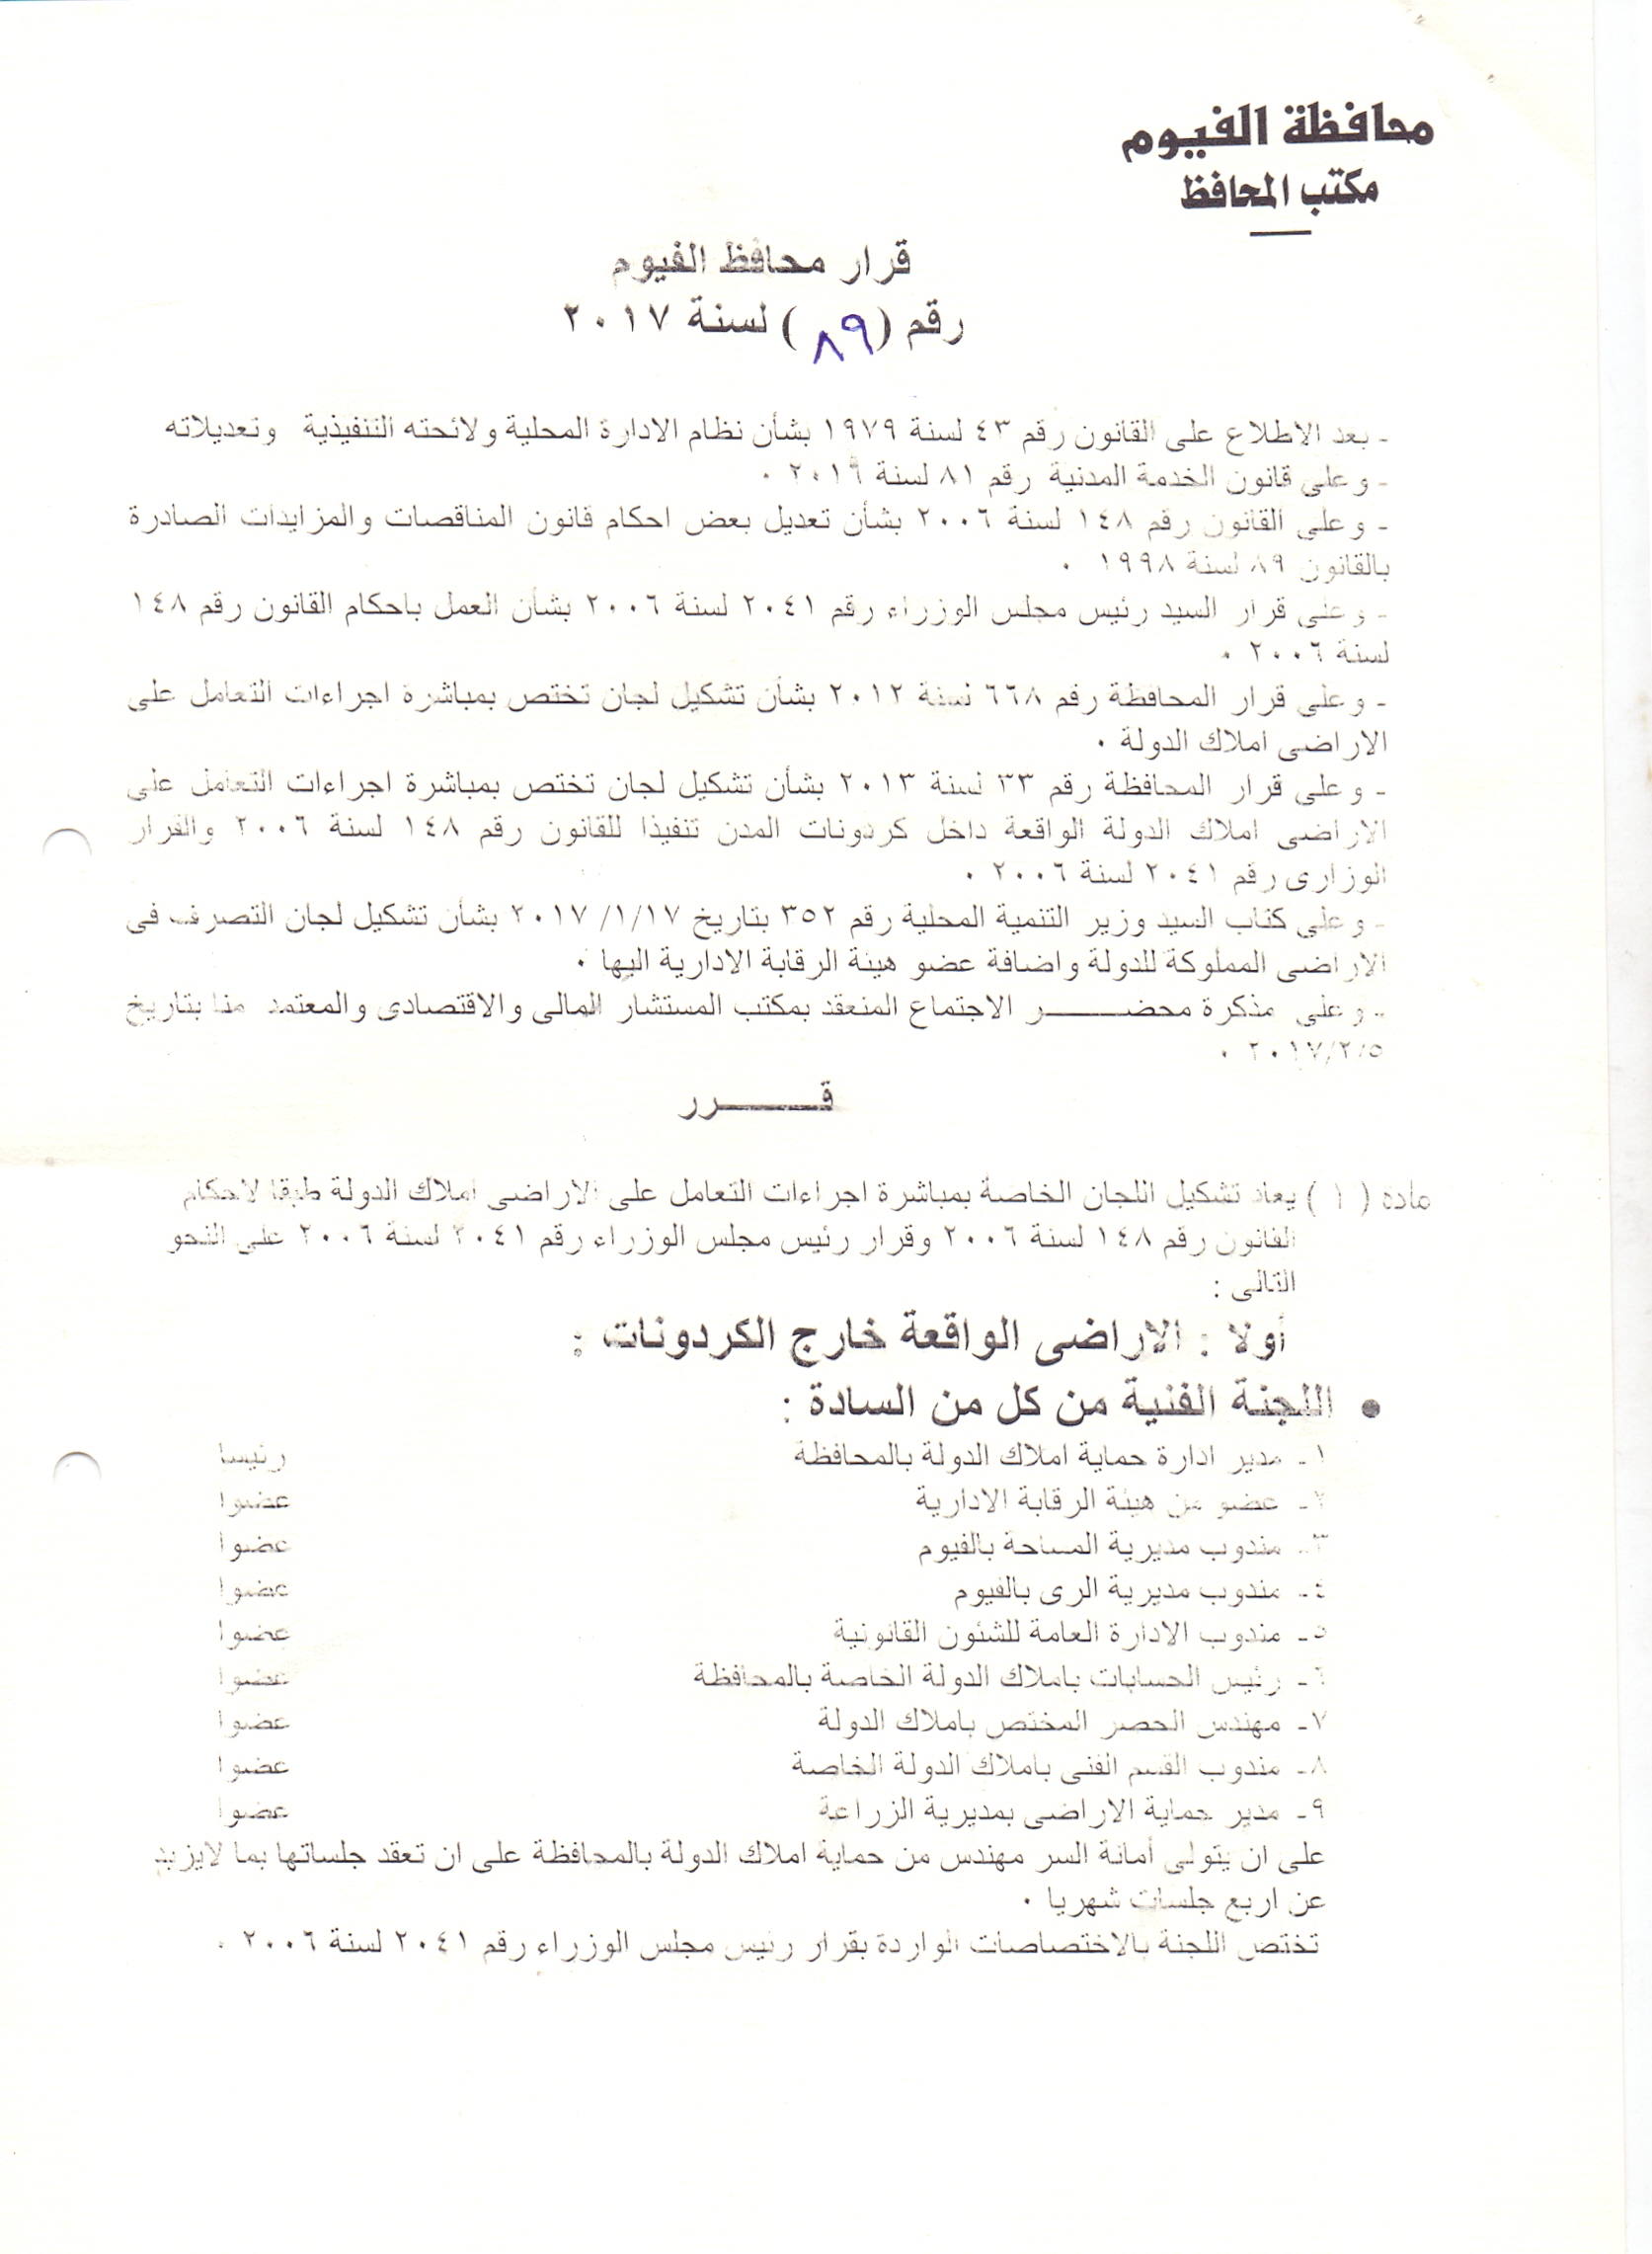 محافظة الفيوم
مكتب المحافظ
قرار محافظ الفيوم
رقم (٨٩) لسنة ٢٠١٧
- بعد الاطلاع على القانون رقم ٤٣ لسنة ١٩٧٩ بشأن نظام الادارة المحلية ولائحته التنفيذية وتعديلاته
- وعلى قانون الخدمة المدنية رقم ٨١ لسنة ٢٠١٦ .
- وعلى القانون رقم ١٤٨ لسنة ٢٠٠٦ بشأن تعديل بعض احكام قانون المناقصات والمزايدات الصادرة
بالقانون ٨٩ لسنة ١٩٩٨ .
- وعلى قرار السيد رئيس مجلس الوزراء رقم ٢٠٤١ لسنة ٢٠٠٦ بشأن العمل باحكام القانون رقم ١٤٨
لسنة ٢٠٠٦ .
- وعلى قرار المحافظة رقم ٦٦٨ لسنة ٢٠١٢ بشأن تشكيل لجان تختص بمباشرة اجراءات التعامل على
الاراضى املاك الدولة .
- وعلى قرار المحافظة رقم ٣٣ لسنة ٢٠١٣ بشأن تشكيل لجان تختص بمباشرة اجراءات التعامل على
الاراضى املاك الدولة الواقعة داخل كردونات المدن تنفيذا للقانون رقم ١٤٨ لسنة ٢٠٠٦ والقرار
الوزارى رقم ٢٠٤١ لسنة ٢٠٠٦ .
- وعلى كتاب السيد وزير التنمية المحلية رقم ٣٥٢ بتاريخ ٢٠١٧/١/١٧ بشأن تشكيل لجان التصرف فى
الاراضى المملوكة للدولة واضافة عضو هيئة الرقابة الادارية اليها .
- وعلى مذكرة محضـــــر الاجتماع المنعقد بمكتب المستشار المالى والاقتصادى والمعتمد منا بتاريخ
٢٠١٧/٢/٥ .
قـــــــرر
مادة ( ١ ) يعاد تشكيل اللجان الخاصة بمباشرة اجراءات التعامل على الاراضى املاك الدولة طبقا لاحكام
القانون رقم ١٤٨ لسنة ٢٠٠٦ وقرار رئيس مجلس الوزراء رقم ٢٠٤١ لسنة ٢٠٠٦ على النحو
التالى :
أولا : الاراضى الواقعة خارج الكردونات :
• اللجنة الفنية من كل من السادة :
١- مدير ادارة حماية املاك الدولة بالمحافظة رئيسا
٢- عضو من هيئة الرقابة الادارية عضوا
٣- مندوب مديرية المساحة بالفيوم عضوا
٤- مندوب مديرية الرى بالفيوم عضوا
٥- مندوب الادارة العامة للشئون القانونية عضوا
٦- رئيس الحسابات باملاك الدولة الخاصة بالمحافظة عضوا
٧- مهندس الحصر المختص باملاك الدولة عضوا
٨- مندوب القسم الفنى باملاك الدولة الخاصة عضوا
٩- مدير حماية الاراضى بمديرية الزراعة عضوا
على ان يتولى أمانة السر مهندس من حماية املاك الدولة بالمحافظة على ان تعقد جلساتها بما لايزيد
عن اربع جلسات شهريا .
تختص اللجنة بالاختصاصات الواردة بقرار رئيس مجلس الوزراء رقم ٢٠٤١ لسنة ٢٠٠٦ .